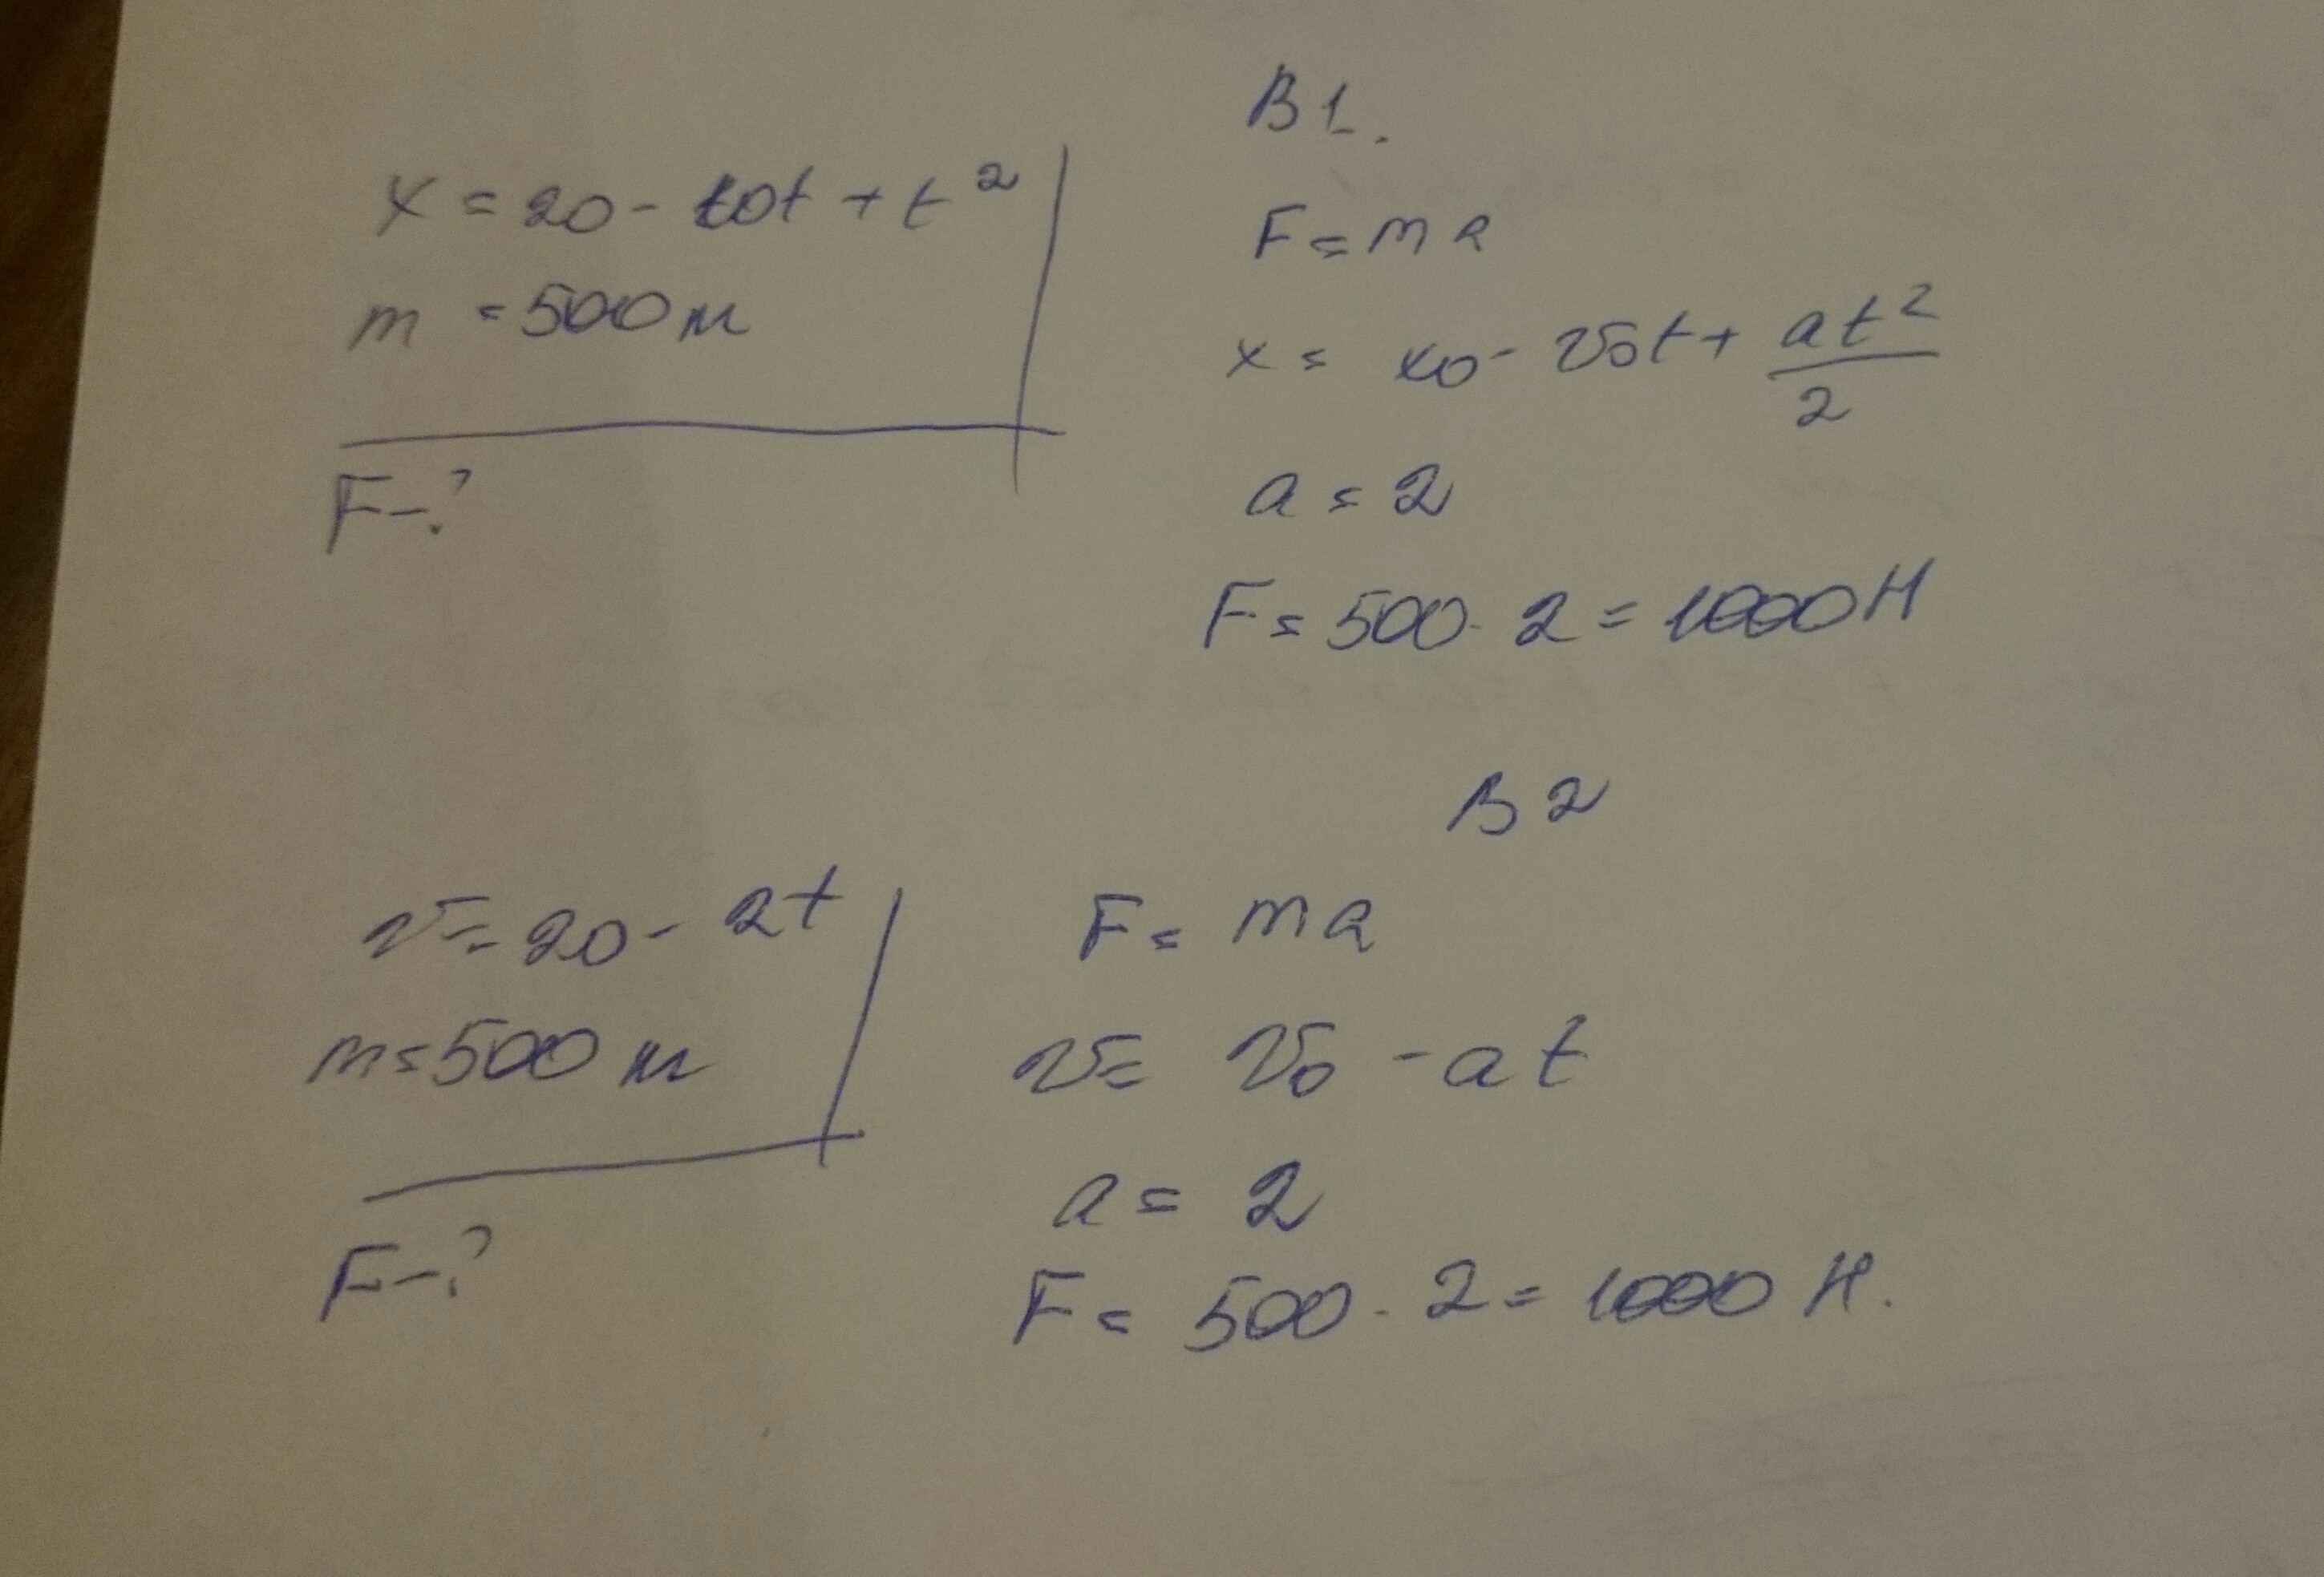 В 1.
x = 20 - 10t + t²
m = 500 м
F - ?
F = ma
x = x₀ - v₀t + at²/2
a = 2
F = 500 · 2 = 1000 Н
В 2
v = 20 - 2t
m = 500 м
F - ?
F = ma
v = v₀ - at
a = 2
F = 500 · 2 = 1000 Н.